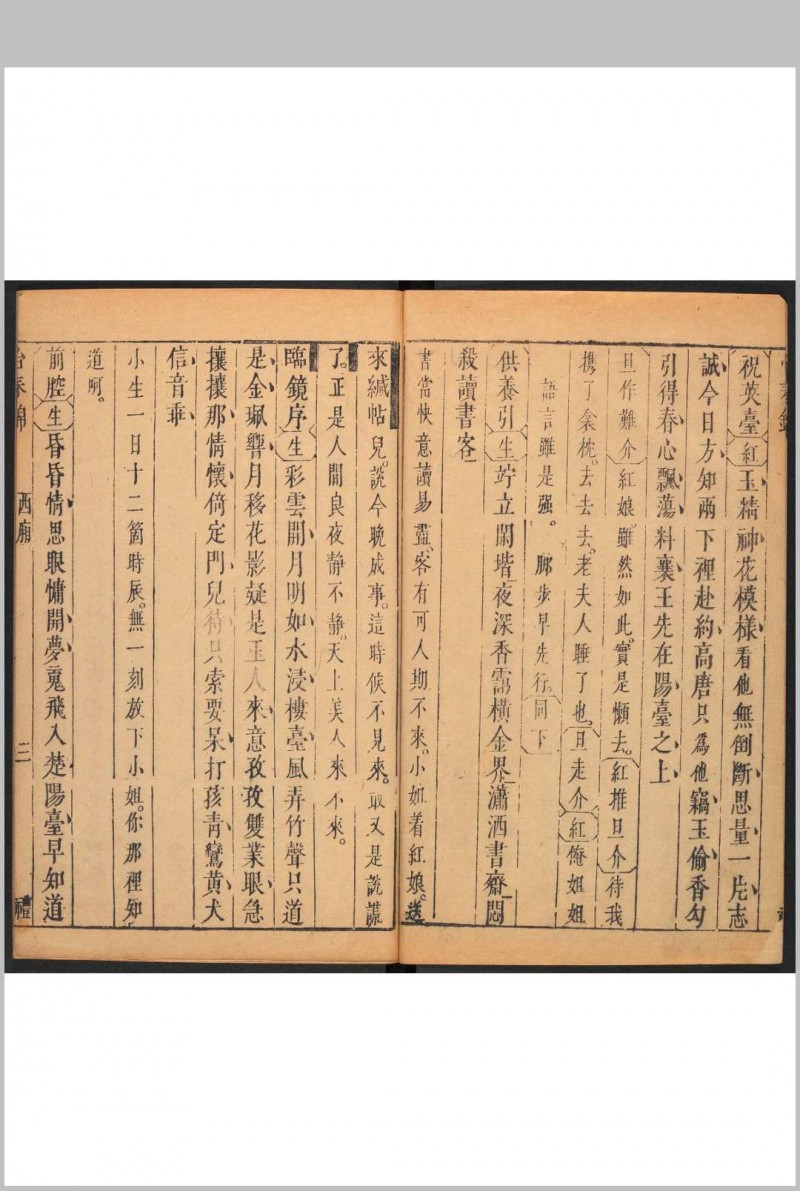 祝英臺紅玉精神花模樣看他無倒斷思量一片志
誠今日方知兩下裡赴約高唐只爲他竊玉偷香勾
引得春心飄蕩料襄王先在陽臺之上
旦作難介紅娘雖然如此實是懶去紅推旦介待我
携了衾枕去去去老夫人睡了也旦走介紅俺姐姐
語言雖是强。脚步早先行同下
供養引生竚立閑堦夜深香靄橫金界瀟洒書齋悶
殺讀書客
書當快意讀易盡。客有可人期不來。小姐着紅娘。送
來緘帖兒。說今晚成事。這時候不見來。又是謊
了。正是人間良夜静不静。天上美人來不來。
臨鏡序生彩雲開月明如水浸樓臺風弄竹聲只道
是金珮響月移花影疑是玉人來意孜孜雙業眼急
攘攘那情懷倚定門兒待只索要呆打孩青鸞黃犬
信音乖
小生一日十二箇時辰。無一刻放下小姐。你那裡知
道呵。
前腔生昏昏情思眼慵開夢䰟飛入楚陽臺早知道
西廂 三